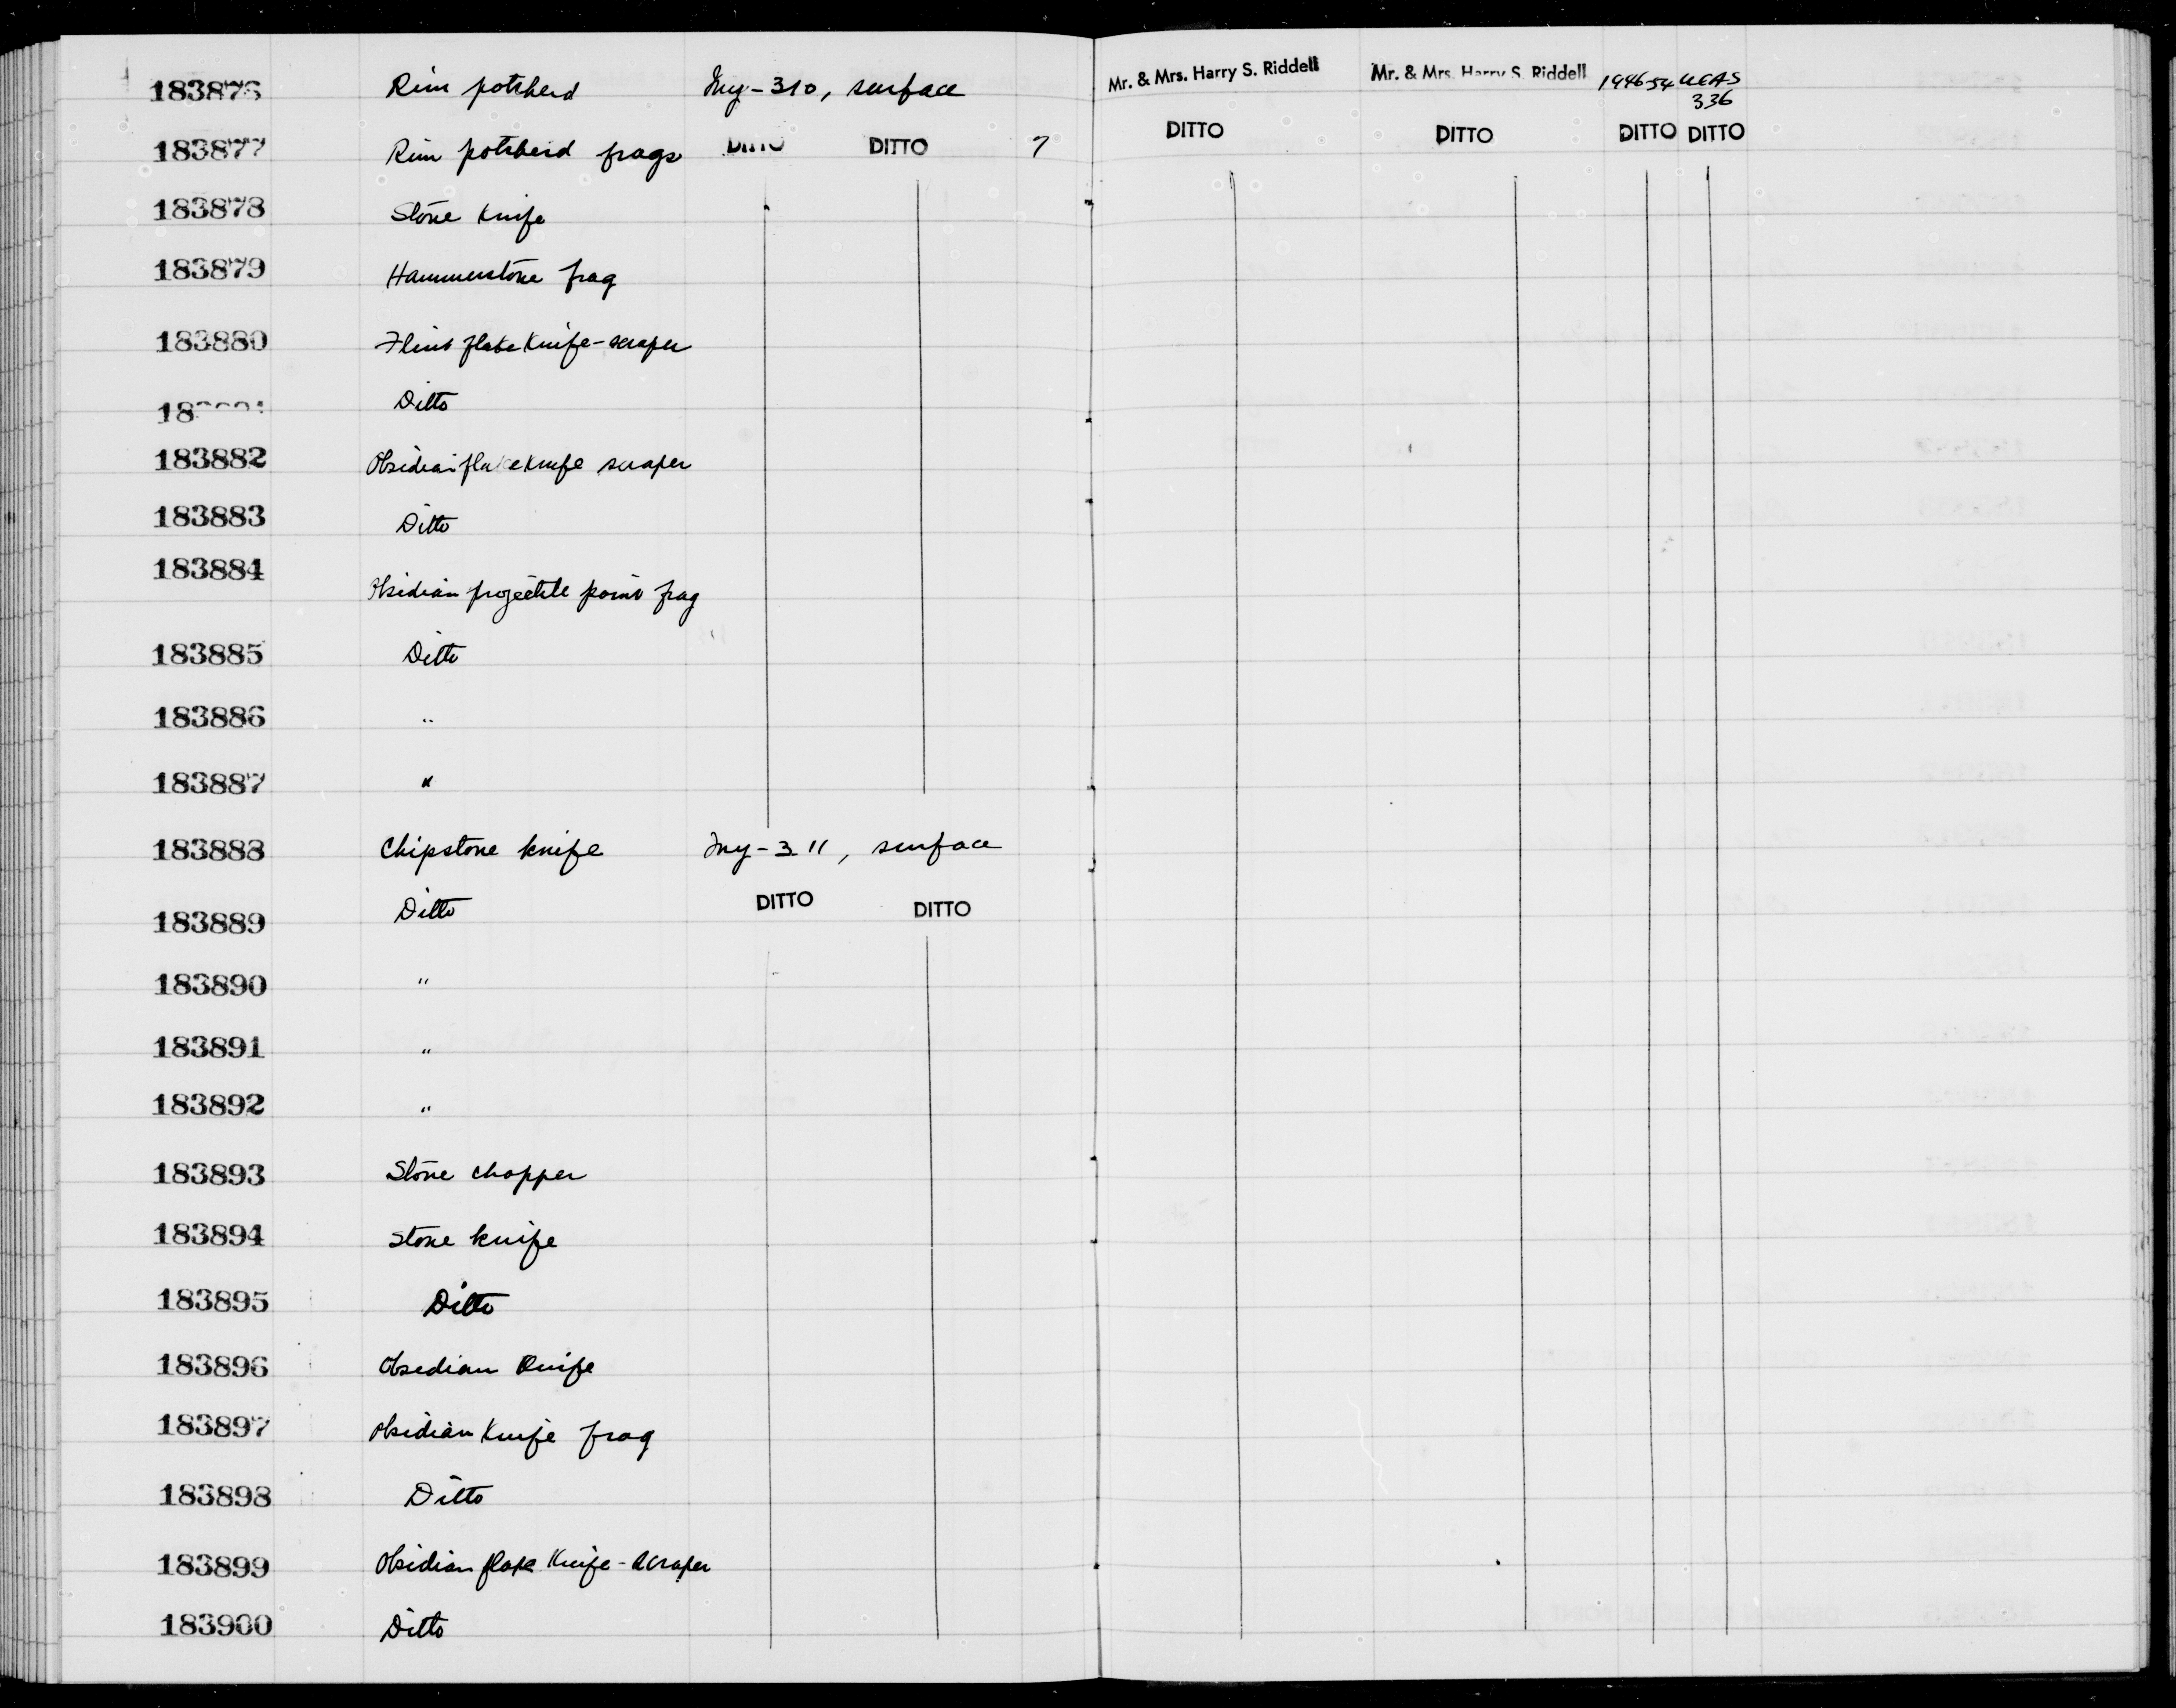 183876 Rim potsherd Iny-310, surface Mr. & Mrs. Harry S. Riddell Mr. & Mrs. Harry S. Riddell 1946-54 UCAS
336
183877 Rim potsherd frags DITTO DITTO 7 DITTO DITTO DITTO DITTO
183878 Stone knife
183879 Hammerstone frag
183880 Flint flake knife-scraper
Ditto
183882 Obsidian flake knife scraper
183883 Ditto
183884 Obsidian projectile point frag
183885 Ditto
183886 "
183887 "
183888 Chipstone knife Iny-311, surface
183889 Ditto DITTO DITTO
183890 "
183891 "
183892 "
183893 Stone chopper
183894 Stone knife
183895 Ditto
183896 Obsedian Knife
183897 Obsidian Knife frag
183898 Ditto
183899 Obsidian flake Knife-scraper
183900 Ditto